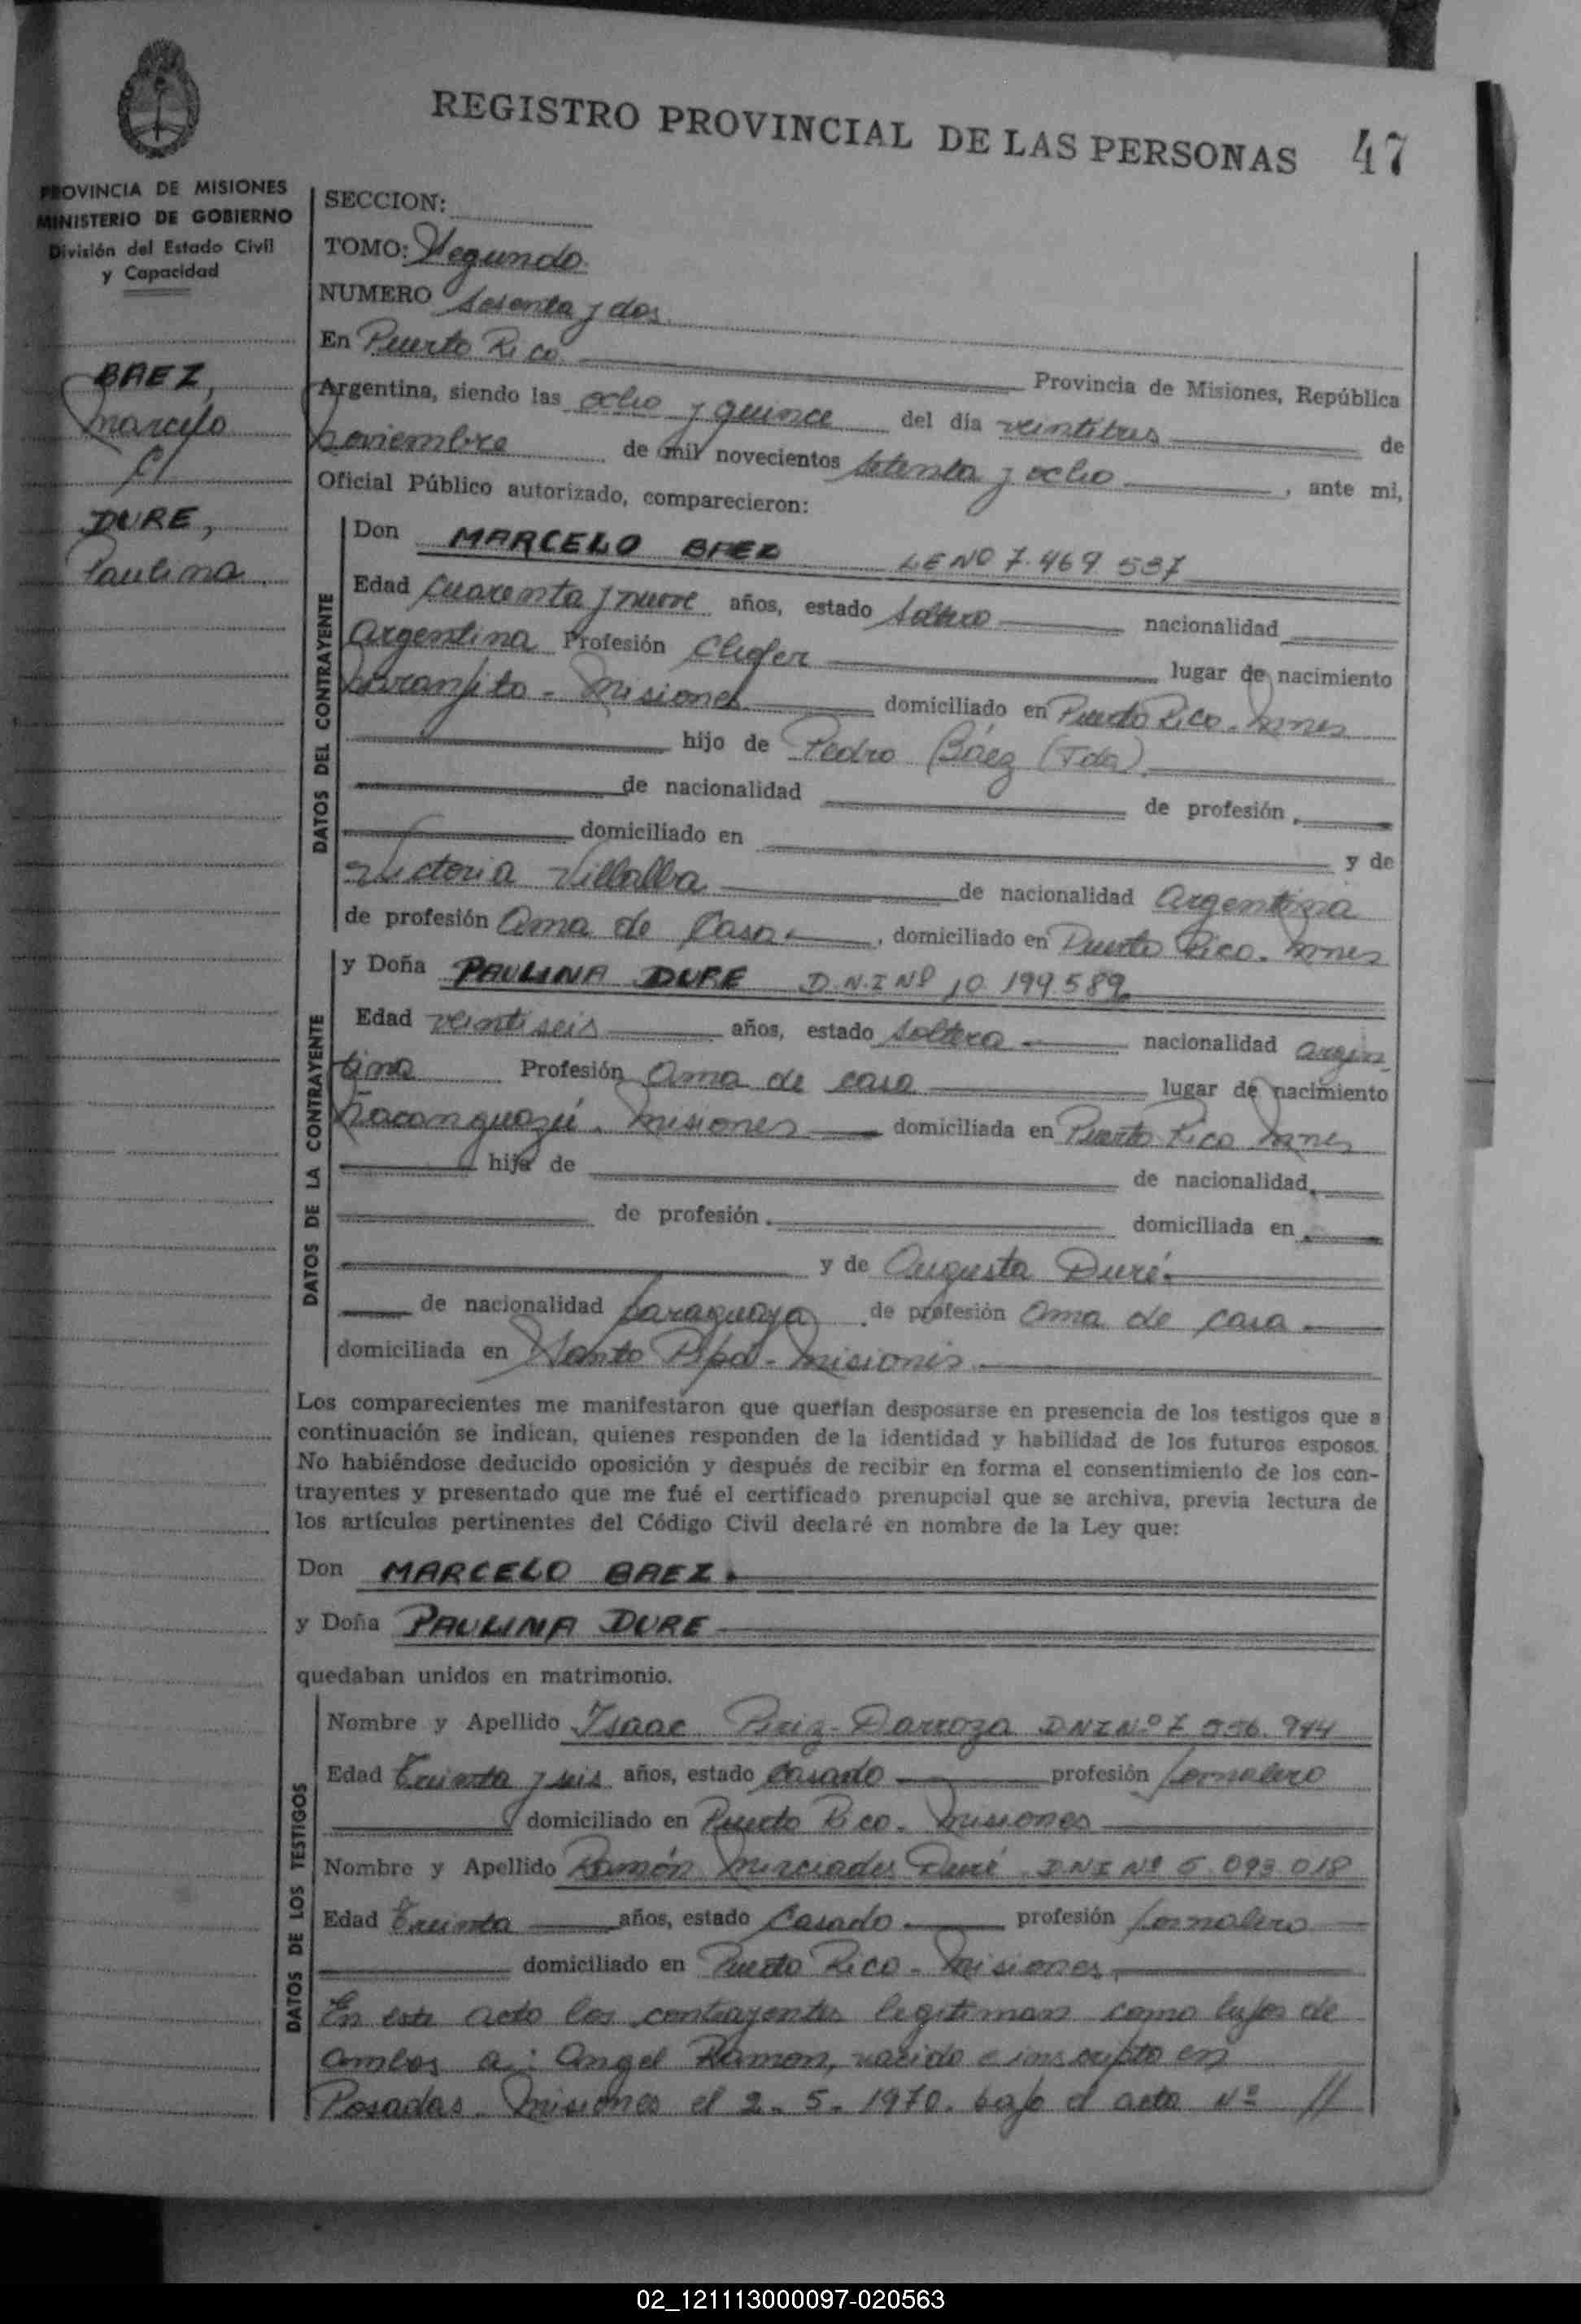 REGISTRO PROVINCIAL DE LAS PERSONAS 47
PROVINCIA DE MISIONES
MINISTERIO DE GOBIERNO
División del Estado Civil
y Capacidad
BAEZ,
Marcelo
C/
DURE,
Paulina
SECCION:
TOMO: Segundo
NUMERO Sesenta y dos
En Puerto Rico Provincia de Misiones, República
Argentina, siendo las ocho y quince del día veintitres de
Noviembre de mil novecientos setenta y ocho, ante mi,
Oficial Público autorizado, comparecieron:
DATOS DEL CONTRAYENTE
Don MARCELO BAEZ LE Nº 7.469.537
Edad Cuarenta y nueve años, estado Soltero nacionalidad
Argentina Profesión Chofer lugar de nacimiento
Naranjito - Misiones domiciliado en Puerto Rico - Mnes
hijo de Pedro Báez (Fdo)
de nacionalidad de profesión
domiciliado en y de
Victoria Villalba de nacionalidad Argentina
de profesión Ama de Casa, domiciliado en Puerto Rico - Mnes
DATOS DE LA CONTRAYENTE
y Doña PAULINA DURE D.N.I Nº 10.199.589
Edad veintiseis años, estado Soltera nacionalidad Argen
tina Profesión Ama de casa lugar de nacimiento
Ñacanguazú - Misiones domiciliada en Puerto Rico Mnes
hija de de nacionalidad
de profesión domiciliada en
y de Augusta Duré
de nacionalidad paraguaya de profesión Ama de casa
domiciliada en Santo Pipó - Misiones
Los comparecientes me manifestaron que querían desposarse en presencia de los testigos que a
continuación se indican, quienes responden de la identidad y habilidad de los futuros esposos.
No habiéndose deducido oposición y después de recibir en forma el consentimiento de los con-
trayentes y presentado que me fué el certificado prenupcial que se archiva, previa lectura de
los artículos pertinentes del Código Civil declaré en nombre de la Ley que:
Don MARCELO BAEZ.
y Doña PAULINA DURE
quedaban unidos en matrimonio.
DATOS DE LOS TESTIGOS
Nombre y Apellido Isaac Darroza DNI Nº 7.556.944
Edad Treinta y seis años, estado Casado profesión Jornalero
domiciliado en Puerto Rico - Misiones
Nombre y Apellido Ramón Mirciades Duré DNI Nº 5.093.018
Edad Treinta años, estado Casado profesión Jornalero
domiciliado en Puerto Rico - Misiones
En este acto los contrayentes legitiman como hijos de
ambos a: Angel Ramon, nacido e inscripto en
Posadas - Misiones el 2-5-1970. bajo el acta Nº //
02_121113000097-020563